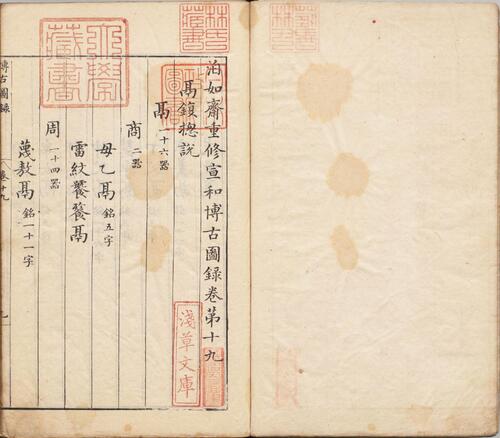 泊如齋重修宣和博古圖錄卷第十九
鬲鍑總說
鬲一十六器
商二器
母乙鬲銘五字
雷紋饕餮鬲
周一十四器
蔑敖鬲銘一十一字
博古圖錄 卷十九
林氏藏書
淺草文庫
藏書